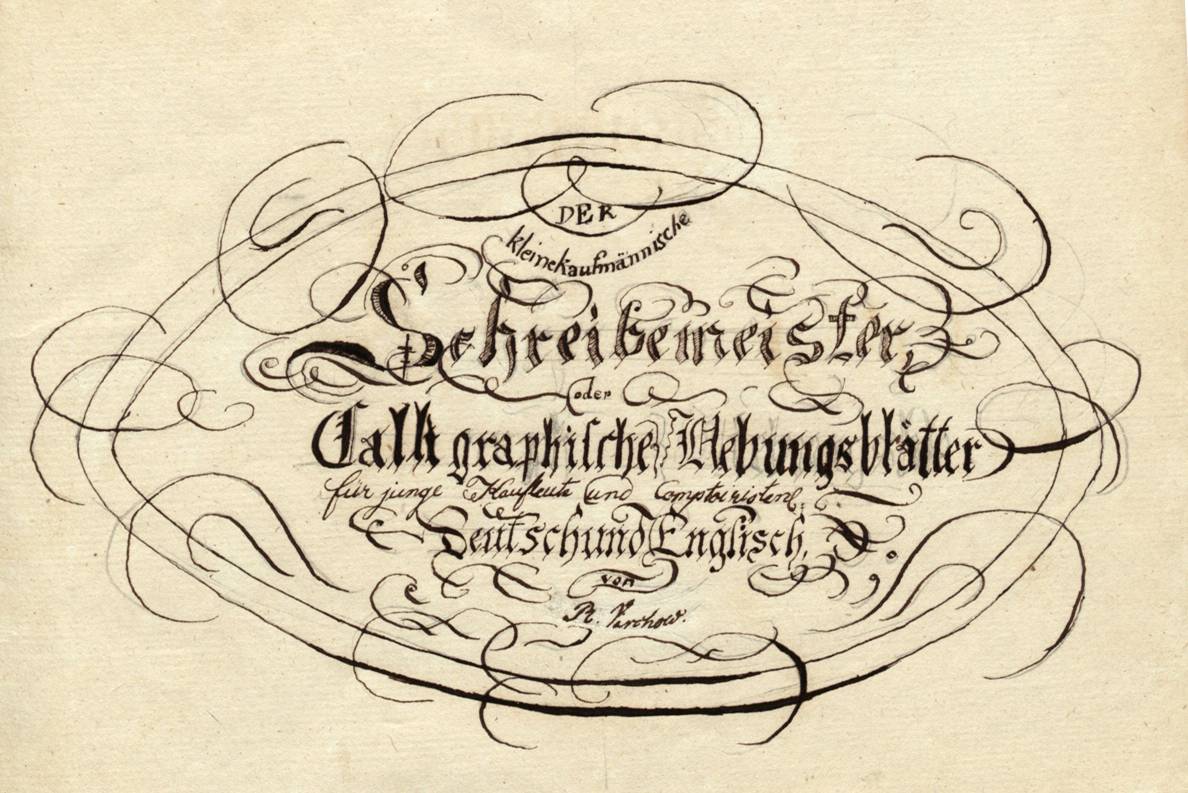 DER
kleine kaufmännische
Schreibemeister,
oder
Calligraphische Uebungsblätter
für junge Kaufleute und Comptoiristen,
Deutsch und Englisch,
von
R. Parchow.